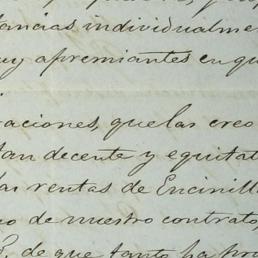 tancias individualme
uy apremiantes en qu
raciones, que las creo
tan decente y equitat
las rentas de Encinill
no de nuestro contrato,
de que tanto ha pro